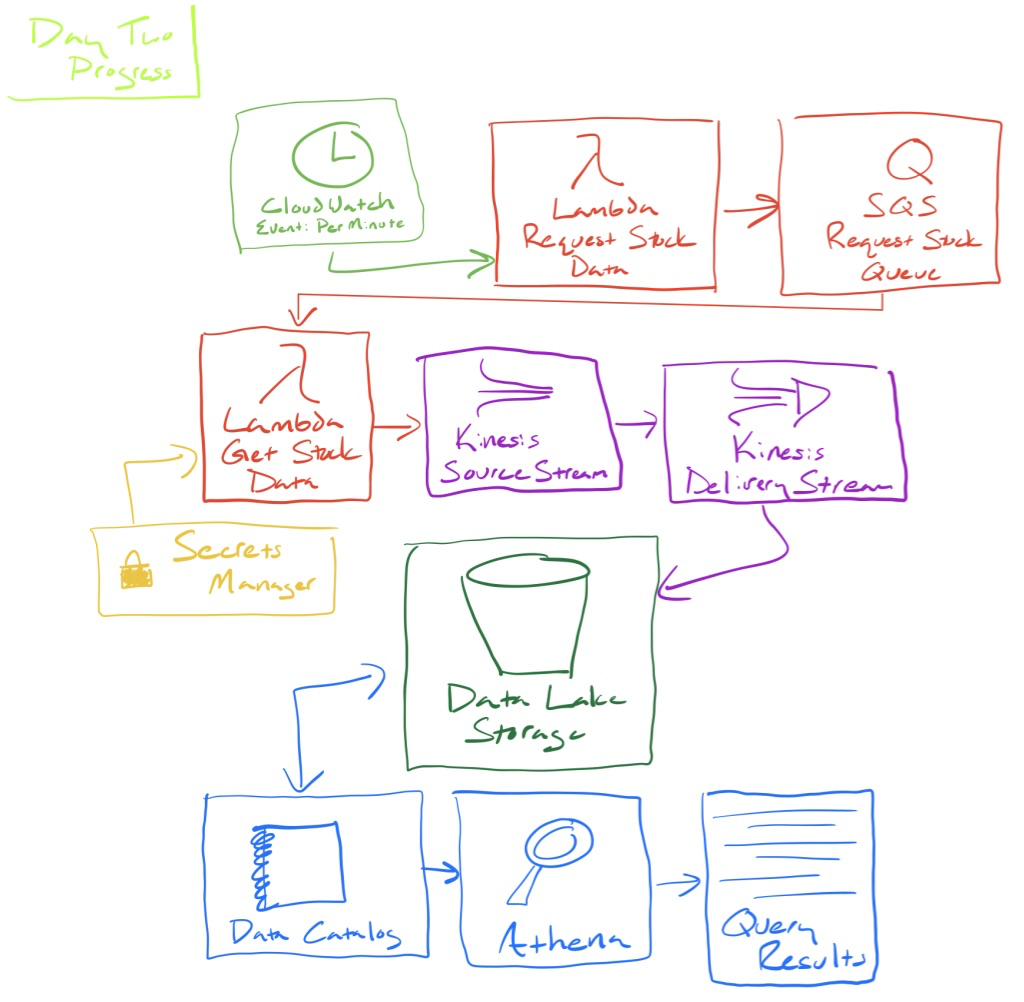 Day Two
Progress
CloudWatch
Event: Per Minute
λ
Lambda
Request Stock
Data
Q
SQS
Request Stock
Queue
λ
Lambda
Get Stock
Data
Kinesis
Source Stream
Kinesis
Delivery Stream
Secrets
Manager
Data Lake
Storage
Data Catalog
Athena
Query
Results